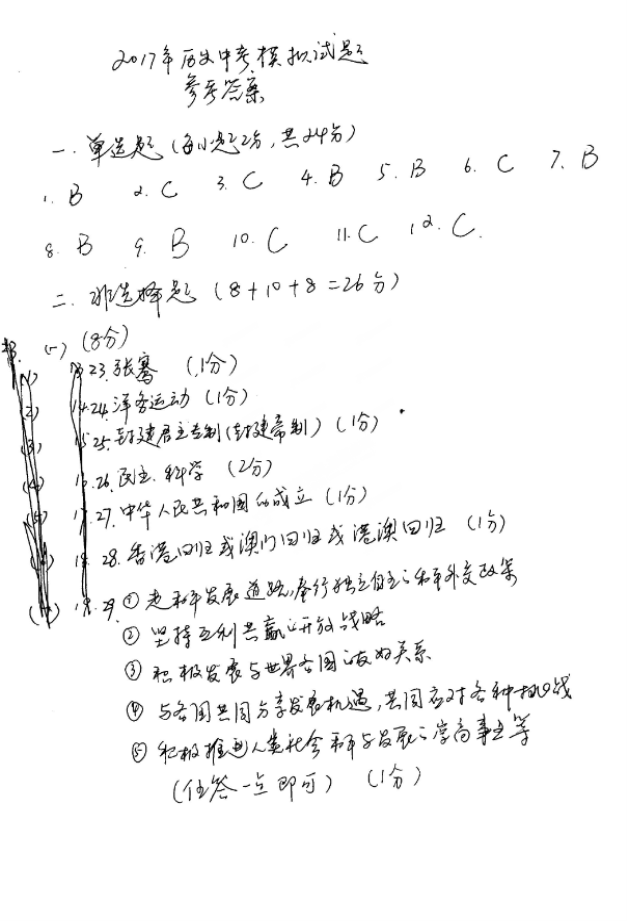 2017年历史中考模拟试题
参考答案
一、单选题（每小题2分,共24分）
1. B 2. C 3. C 4. B 5. B 6. C 7. B
8. B 9. B 10. C 11. C 12. C.
二、非选择题（8+10+8=26分）
(一) (8分)
23. 张骞 (1分)
24. 洋务运动 (1分)
25. 封建君主专制(封建帝制) (1分)
26. 民主.科学 (2分)
27. 中华人民共和国的成立 (1分)
28. 香港回归或澳门回归或港澳回归 (1分)
29. ① 走和平发展道路,奉行独立自主的和平外交政策
② 坚持互利共赢的开放战略
③ 积极发展与世界各国的友好关系
④ 与各国共同分享发展机遇,共同应对各种挑战
⑤ 积极推进人类社会和平与发展的崇高事业等
(任答一点即可) (1分)